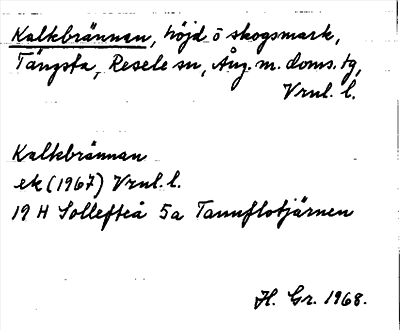 Kalkbrännan, höjd ö skogsmark,
Tängsta, Resele sn, Ång. m. doms. tg,
Vrnl. l.
Kalkbrännan
ek (1967) Vrnl. l.
19 H Sollefteå 5a Tannflotjärnen
H. Gr. 1968.